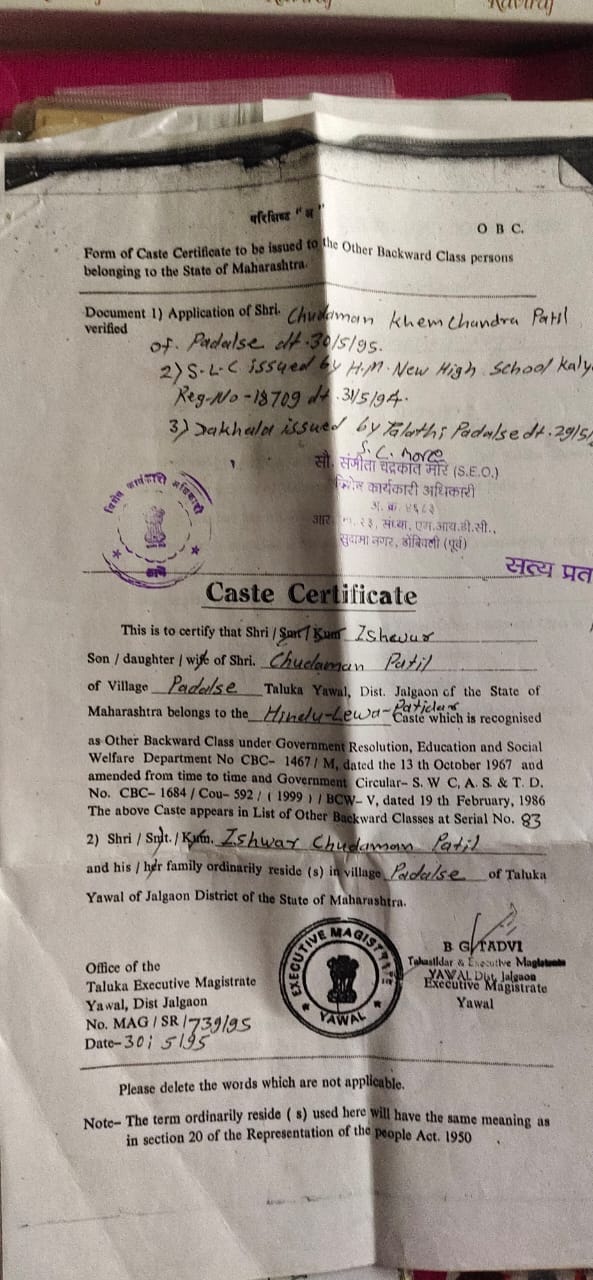 Raviraj
परिशिष्ट "अ"
O B C.
Form of Caste Certificate to be issued to the Other Backward Class persons
belonging to the State of Maharashtra.
Document 1) Application of Shri. Chudaman Khemchandra Patil
verified of. Padalse dt. 30/5/95.
2) S-L-C issued by H.M. New High School Kaly
Reg-No-18709 dt. 31/5/94.
3) Dakhala issued by Talathi Padalse dt. 29/5/
S. C. More
सौ. संगीता चंद्रकांत मोरे (S.E.O.)
विशेष कार्यकारी अधिकारी
अ. क्र. ४६८३
आर २३, संध्या, एम.आय.डी.सी.,
सुदामा नगर, डोंबिवली (पूर्व)
विशेष कार्यकारी अधिकारी
ठाणे
सत्य प्रत
Caste Certificate
This is to certify that Shri / Smt / Kum Ishwar
Son / daughter / wife of Shri. Chudaman Patil
of Village Padalse Taluka Yawal, Dist. Jalgaon of the State of
Maharashtra belongs to the Hindu-Lewa-Patidar Caste which is recognised
as Other Backward Class under Government Resolution, Education and Social
Welfare Department No CBC- 1467 / M, dated the 13 th October 1967 and
amended from time to time and Government Circular- S. W C, A. S. & T. D.
No. CBC- 1684 / Cou- 592 / ( 1999 ) / BCW- V, dated 19 th February, 1986
The above Caste appears in List of Other Backward Classes at Serial No. 83
2) Shri / Smt. / Kum. Ishwar Chudaman Patil
and his / her family ordinarily reside (s) in village Padalse of Taluka
Yawal of Jalgaon District of the State of Maharashtra.
EXECUTIVE MAGISTRATE
YAWAL
B G TADVI
Tahasildar & Executive Magistrate
YAWAL Dist. Jalgaon
Executive Magistrate
Yawal
Office of the
Taluka Executive Magistrate
Yawal, Dist Jalgaon
No. MAG / SR / 739/95
Date- 30/5/95
Please delete the words which are not applicable.
Note- The term ordinarily reside ( s) used here will have the same meaning as
in section 20 of the Representation of the people Act. 1950